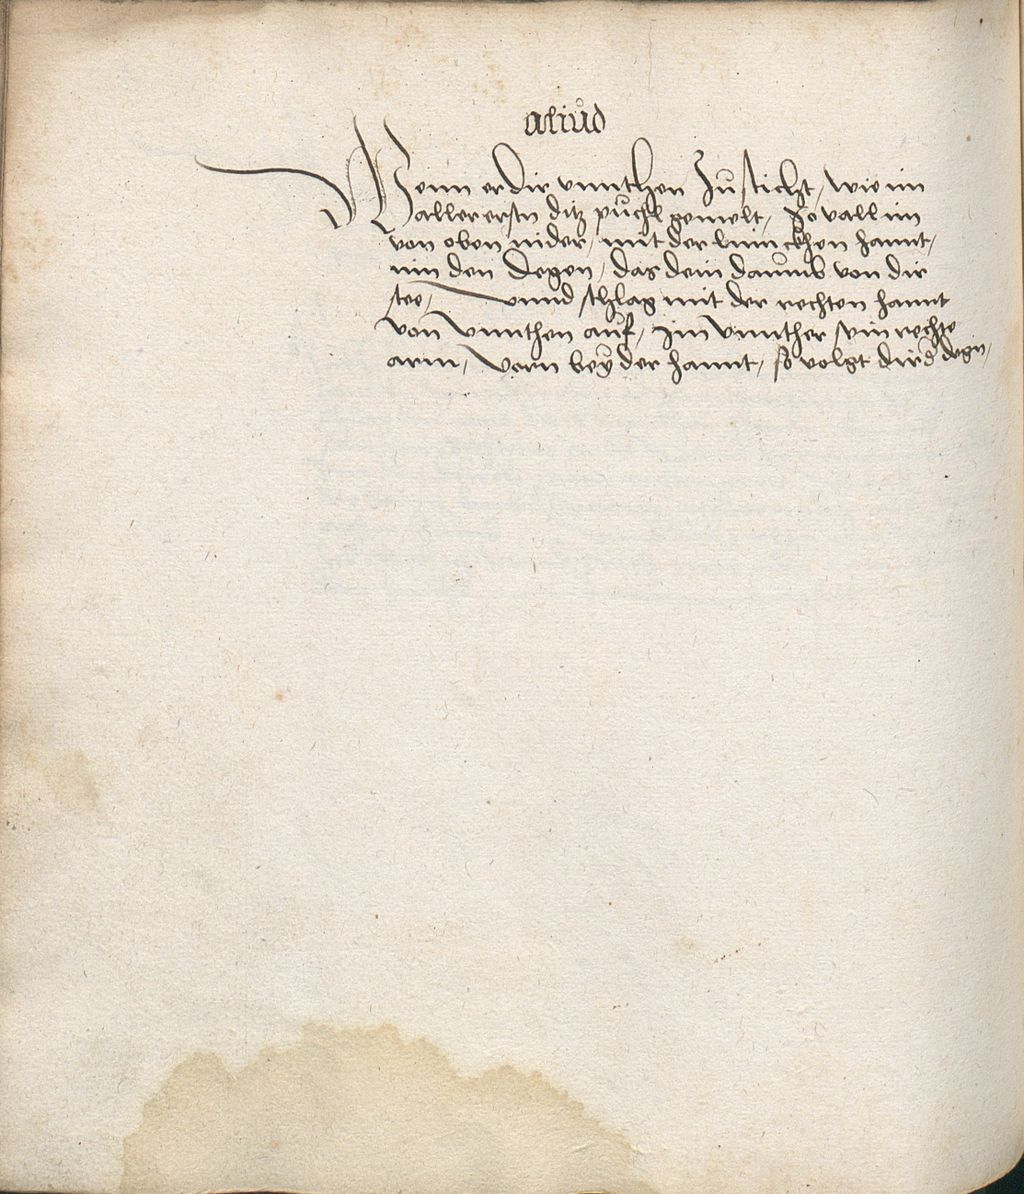 aliud
Wenn er dir vnnthen Zů sticht, wie im
aller erstn ditz půchl gemelt, So vall im
von oben nider, mit der linnckhen hannt,
inn den Degen, das dein daůmb von dir
stee, vnnd schlag mit der rechten hannt
von vnnthen aůf, im vnnther sein rechte
arm, vorn beÿ der hannt, so volgt dir d degn,